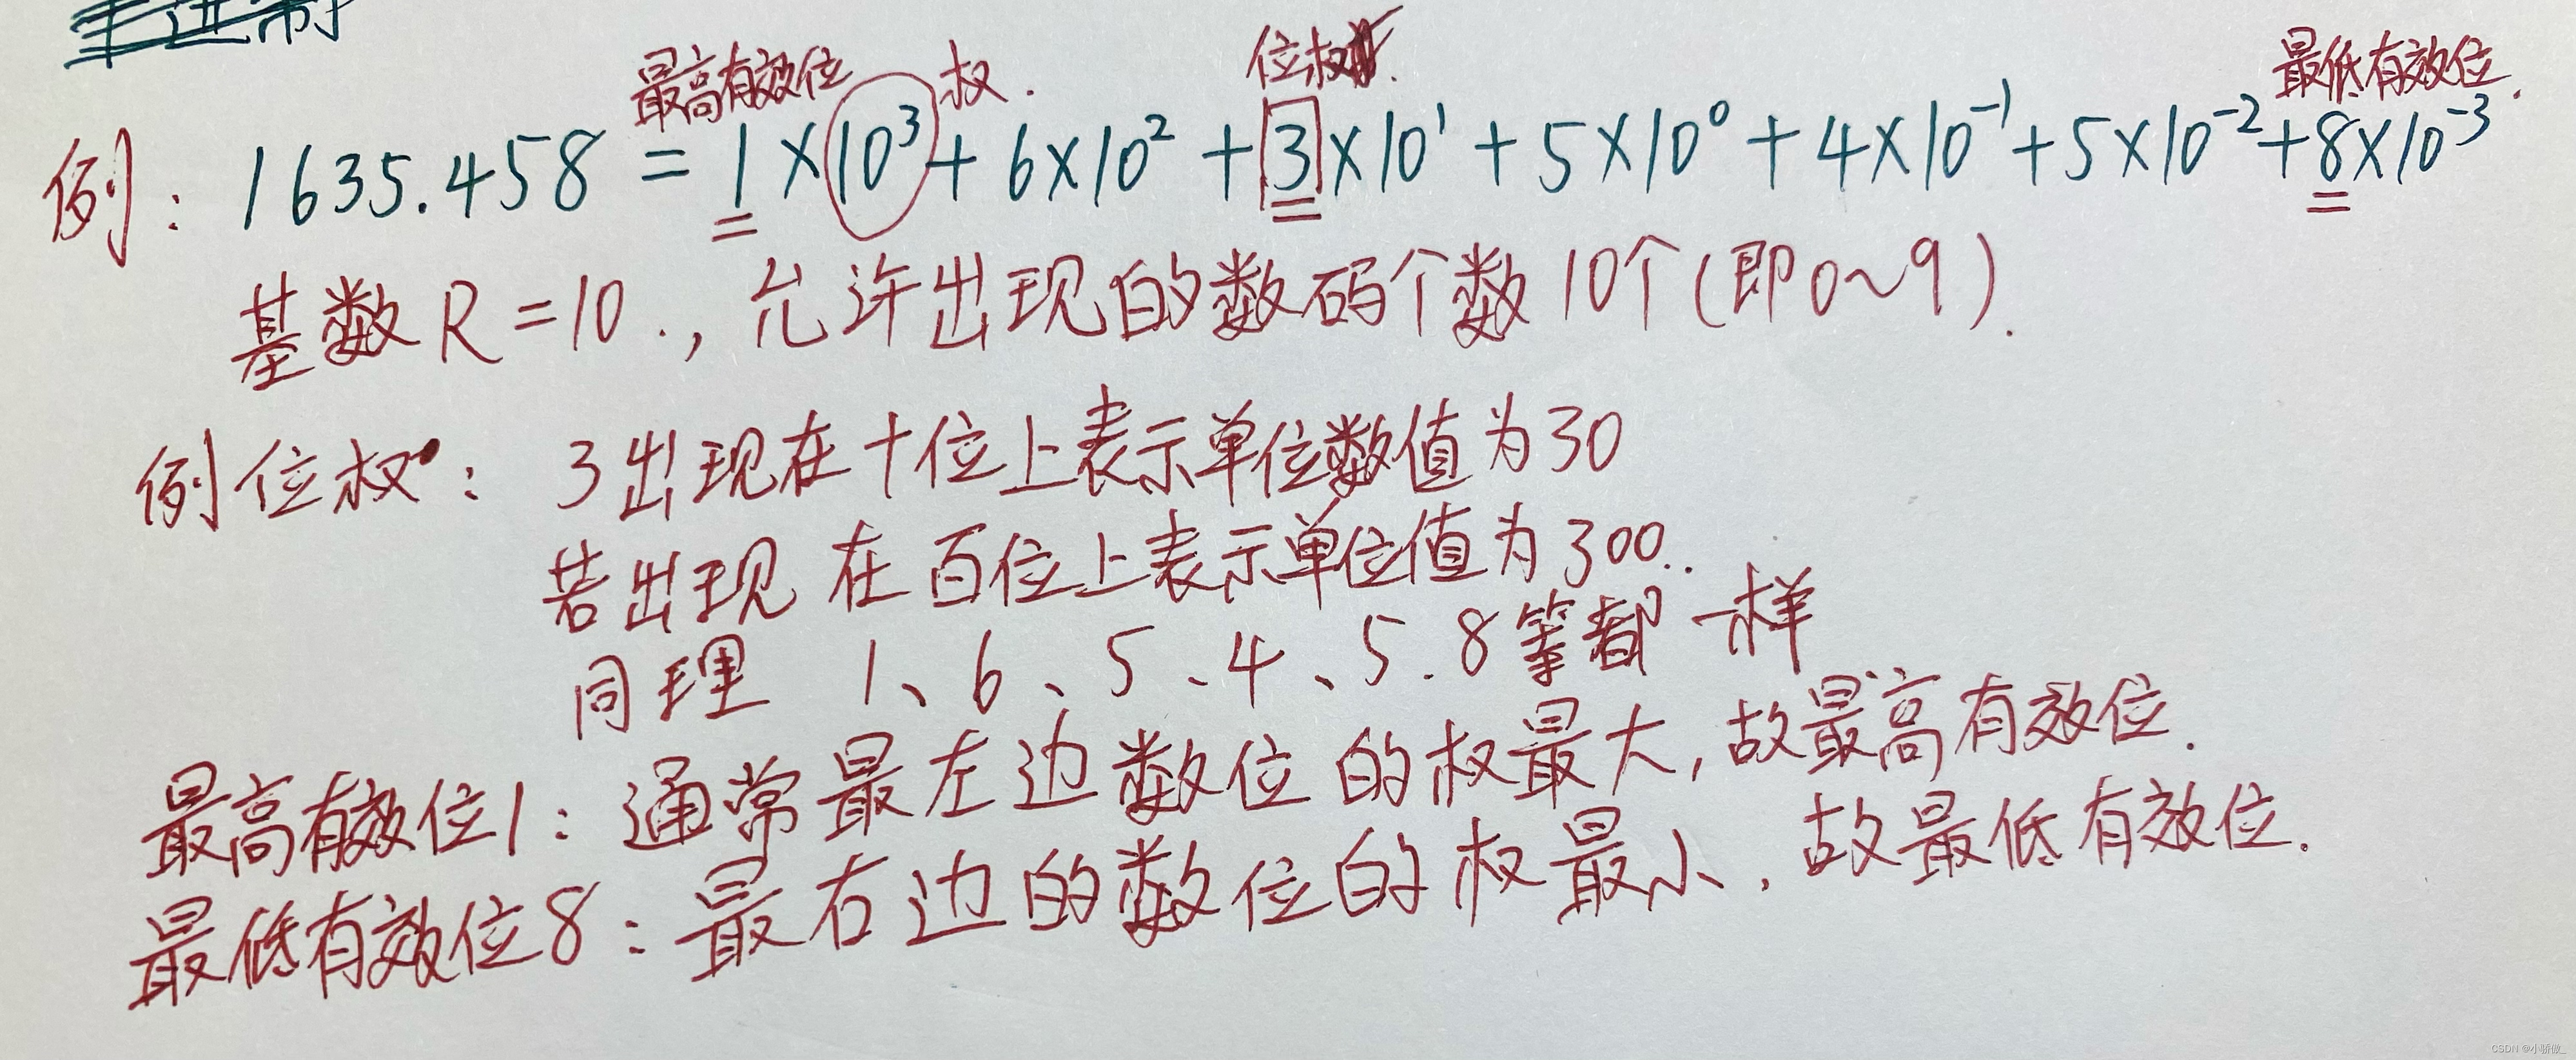 进制
最高有效位 权. 位权 最低有效位.
例: 1635.458 = 1×10³+6×10²+3×10¹+5×10⁰+4×10⁻¹+5×10⁻²+8×10⁻³
基数R=10.,允许出现的数码个数10个(即0~9).
例位权: 3出现在十位上表示单位数值为30
若出现在百位上表示单位值为300..
同理 1、6、5、4、5.8等都一样
最高有效位1:通常最左边数位的权最大,故最高有效位.
最低有效位8:最右边的数位的权最小,故最低有效位.
CSDN @小骄傲_